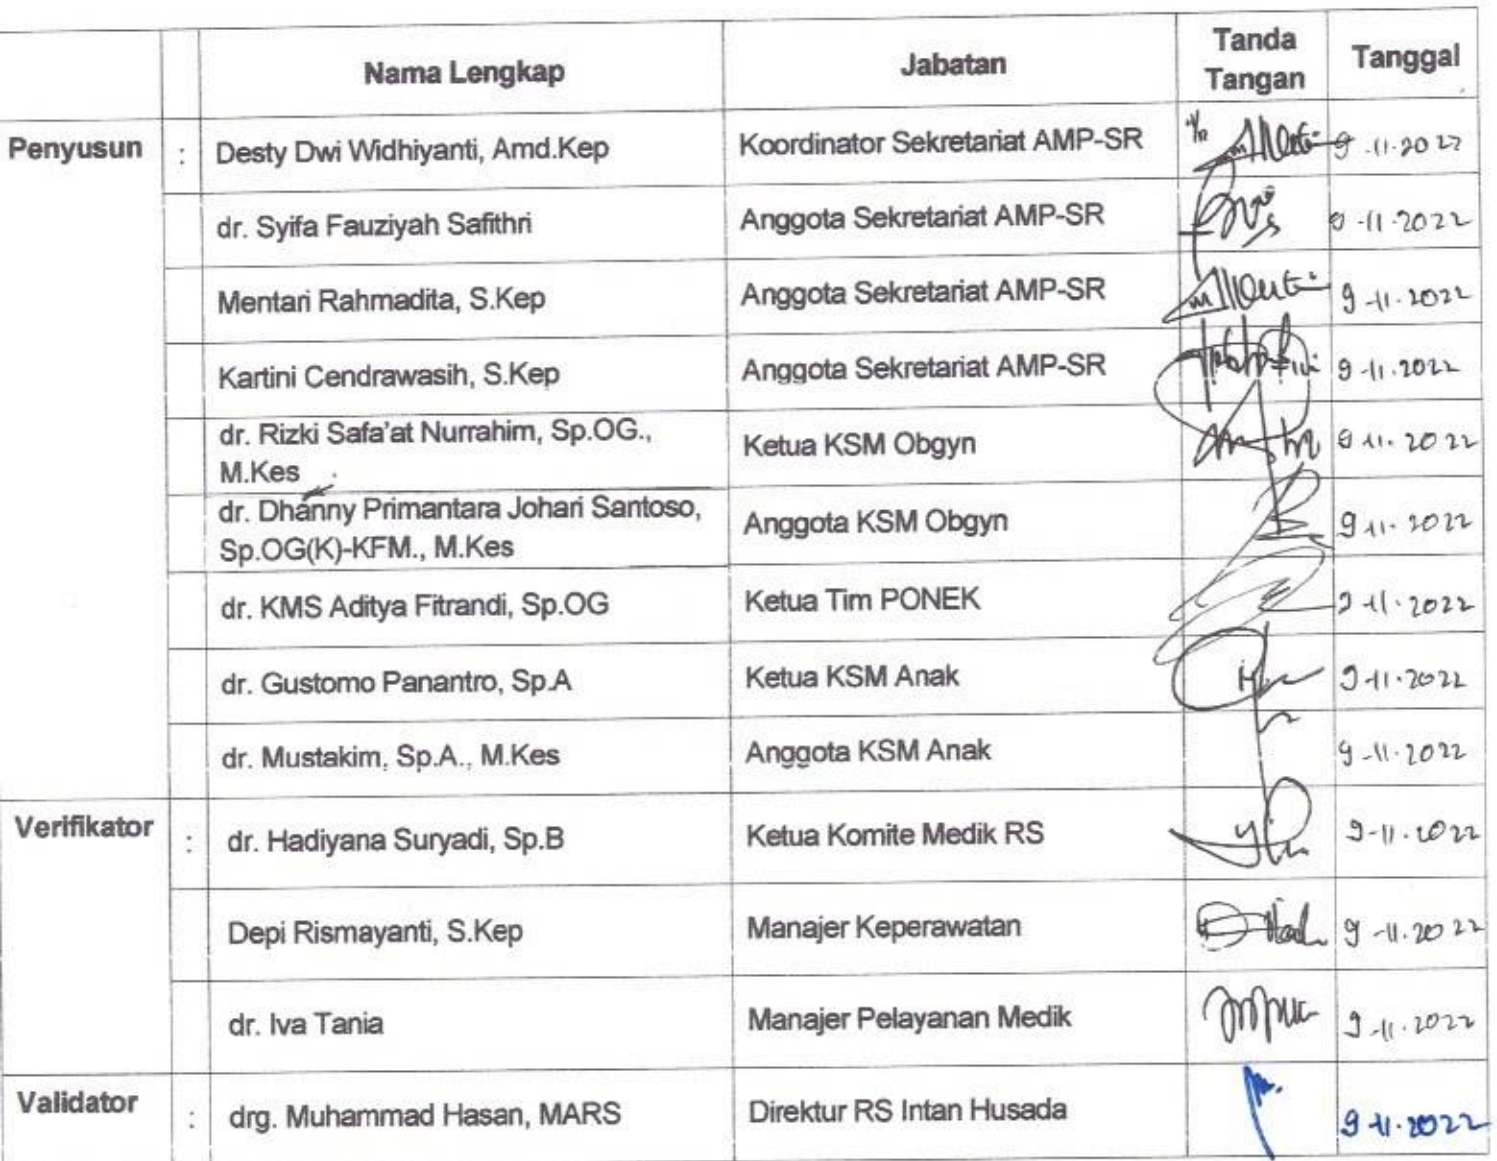 Nama Lengkap Jabatan Tanda Tangan Tanggal
Penyusun : Desty Dwi Widhiyanti, Amd.Kep Koordinator Sekretariat AMP-SR 9-11-2022
dr. Syifa Fauziyah Safithri Anggota Sekretariat AMP-SR 9-11-2022
Mentari Rahmadita, S.Kep Anggota Sekretariat AMP-SR 9-11-2022
Kartini Cendrawasih, S.Kep Anggota Sekretariat AMP-SR 9-11-2022
dr. Rizki Safa'at Nurrahim, Sp.OG.,
M.Kes Ketua KSM Obgyn 9-11-2022
dr. Dhanny Primantara Johari Santoso,
Sp.OG(K)-KFM., M.Kes Anggota KSM Obgyn 9-11-2022
dr. KMS Aditya Fitrandi, Sp.OG Ketua Tim PONEK 9-11-2022
dr. Gustomo Panantro, Sp.A Ketua KSM Anak 9-11-2022
dr. Mustakim, Sp.A., M.Kes Anggota KSM Anak 9-11-2022
Verifikator : dr. Hadiyana Suryadi, Sp.B Ketua Komite Medik RS 9-11-2022
Depi Rismayanti, S.Kep Manajer Keperawatan 9-11-2022
dr. Iva Tania Manajer Pelayanan Medik 9-11-2022
Validator : drg. Muhammad Hasan, MARS Direktur RS Intan Husada 9-11-2022